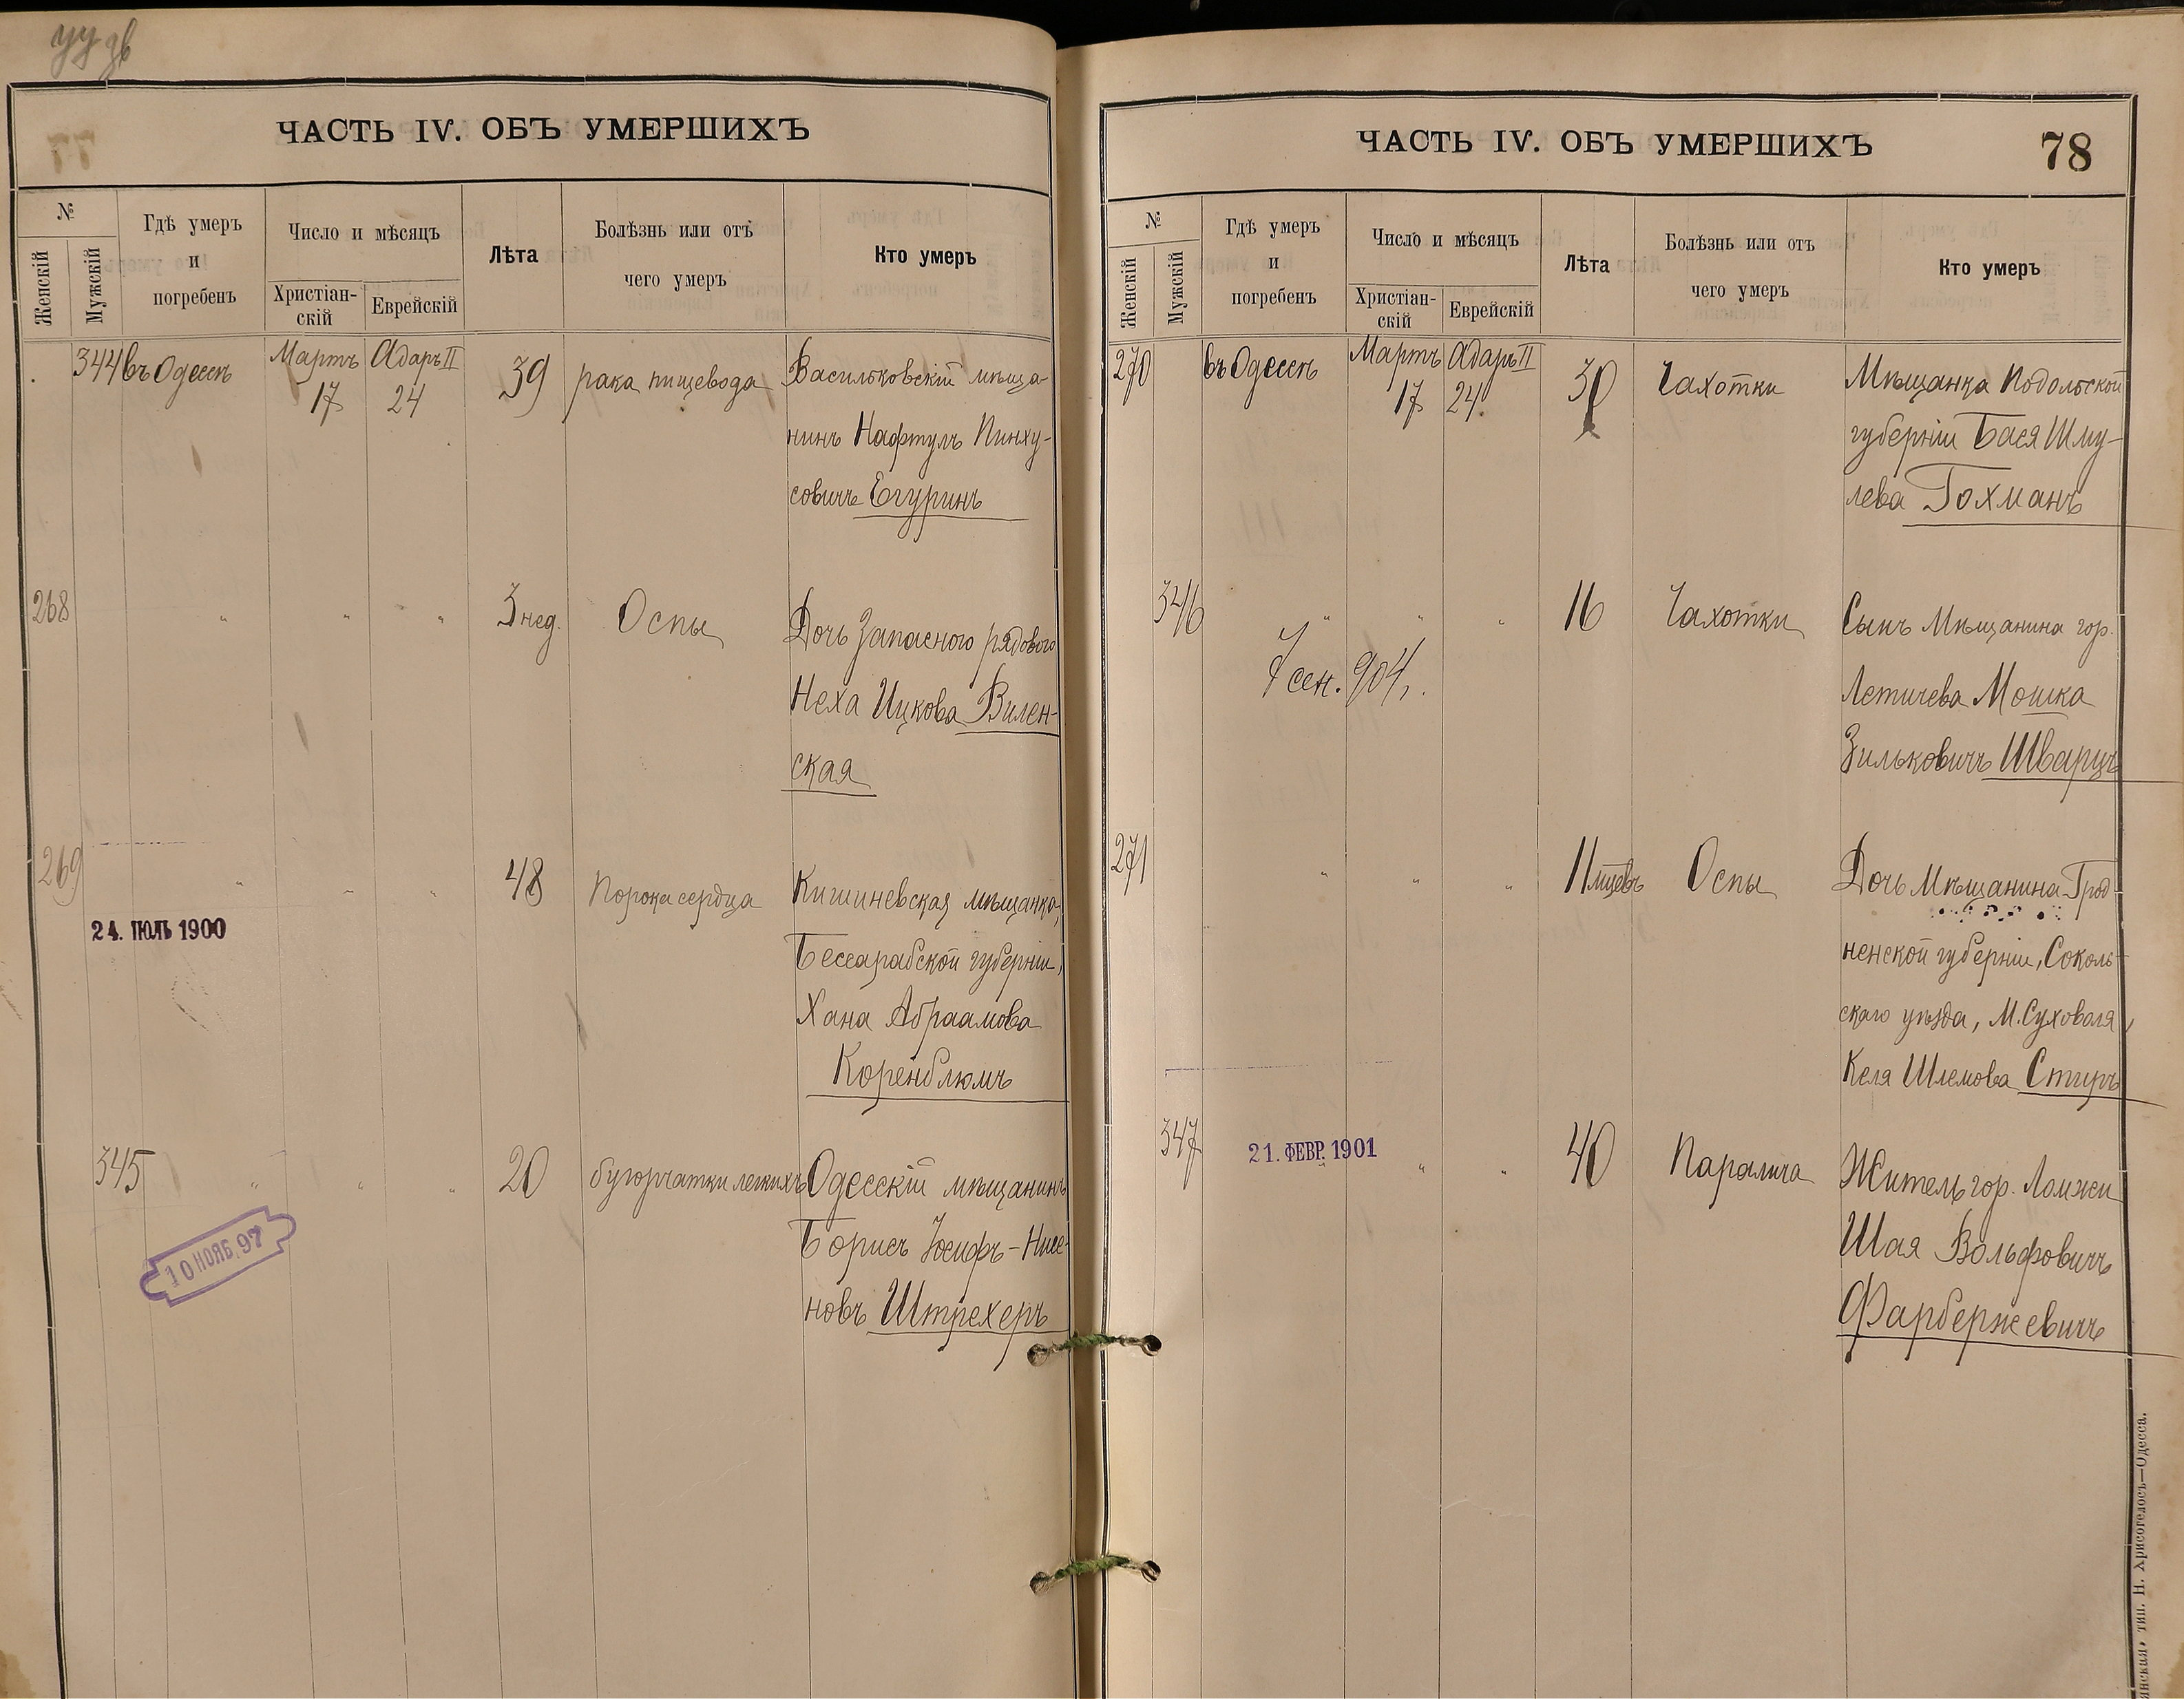 ЧАСТЬ IV. ОБЪ УМЕРШИХЪ
№
Женскій
Мужскій
Гдѣ умеръ
и
погребенъ
Число и мѣсяцъ
Христіан-
скій
Еврейскій
Лѣта
Болѣзнь или отъ
чего умеръ
Кто умеръ
344 въ Одессѣ Мартъ 17 Адаръ II 24 39 рака пищевода Васильковскій мѣща-
нинъ Нафтулъ Пинху-
совичъ Егуринъ
268 " " " 3 нед. Оспы Дочь Запасного рядового
Неха Ицкова Вилен-
ская
269 " " " 48 Порока сердца Кишиневская мѣщанка,
24. ІЮЛЬ 1900
Бессарабской губерніи,
Хана Абраамова
Коренблюмъ
345 " " " 20 бугорчатки легкихъ Одесскій мѣщанинъ
10 НОЯБ. 97
Борисъ Іосифъ-Нисе-
новъ Штрехеръ
ЧАСТЬ IV. ОБЪ УМЕРШИХЪ
78
№
Женскій
Мужскій
Гдѣ умеръ
и
погребенъ
Число и мѣсяцъ
Христіан-
скій
Еврейскій
Лѣта
Болѣзнь или отъ
чего умеръ
Кто умеръ
270 въ Одессѣ Мартъ 17 Адаръ II 24 30 Чахотки Мѣщанка Подольской
губерніи Бася Шму-
лева Гохманъ
346 " " " 16 Чахотки Сынъ Мѣщанина гор.
7 сен. 904,
Летичева Мошка
Зильковичъ Шварцъ
271 " " " 11 мцевъ Оспы Дочь Мѣщанина Грод-
ненской губерніи, Соколь-
скаго уѣзда, М. Суховоля,
Келя Шлемова Стиръ
347 " " " 40 Паралича Житель гор. Ломжи
21. ФЕВР. 1901
Шая Вольфовичъ
Фарбержевичъ
тип. Н. Хрисогелосъ—Одесса.